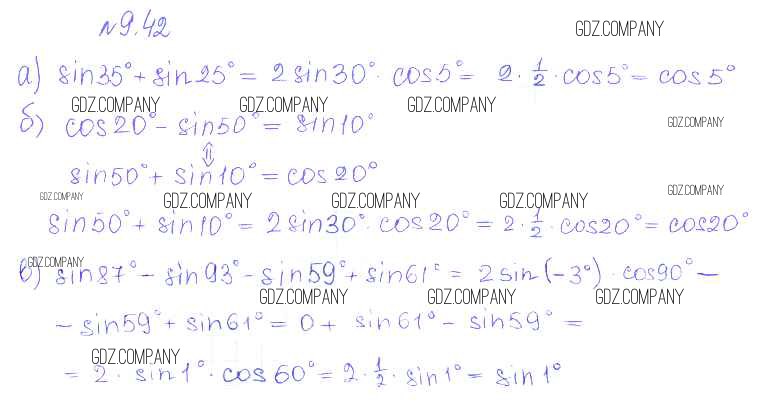 №9.42
GDZ.COMPANY
а) sin35° + sin25° = 2sin30° · cos5° = 2 · 1/2 · cos5° = cos5°
GDZ.COMPANY GDZ.COMPANY GDZ.COMPANY
б) cos20° - sin50° = sin10°
GDZ.COMPANY
⇕
sin50° + sin10° = cos20°
GDZ.COMPANY GDZ.COMPANY GDZ.COMPANY GDZ.COMPANY GDZ.COMPANY
sin50° + sin10° = 2sin30° · cos20° = 2 · 1/2 · cos20° = cos20°
GDZ.COMPANY
в) sin87° - sin93° - sin59° + sin61° = 2sin(-3°) · cos90° -
GDZ.COMPANY GDZ.COMPANY GDZ.COMPANY
- sin59° + sin61° = 0 + sin61° - sin59° =
GDZ.COMPANY
= 2 · sin1° · cos60° = 2 · 1/2 · sin1° = sin1°